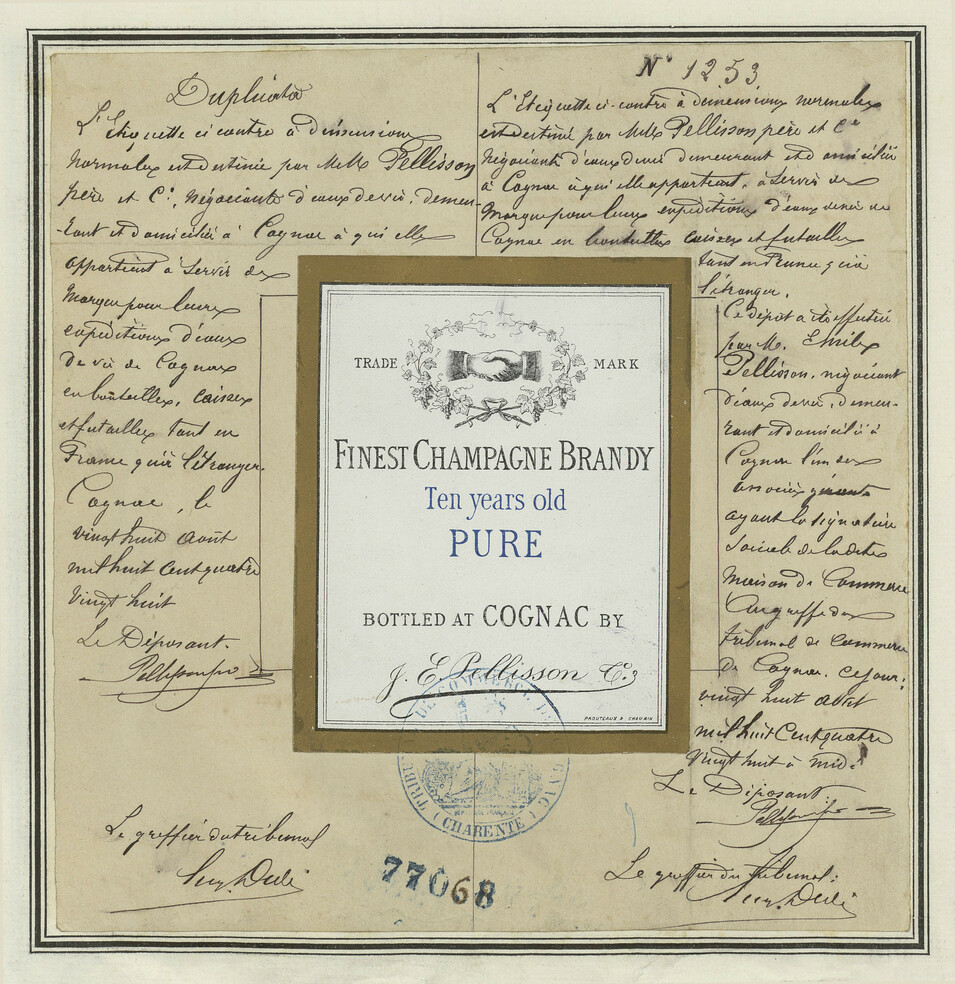 Duplicata
L'Etiquette ci contre à dimensions
normales est destiné par MM. Pellisson
père et Cie, négociants d'eaux de vie, demeu-
-rant et domicilié à Cognac à qui elle
appartient à servir de
marque pour leurs
expéditions d'eaux
de vie de Cognac
en bouteilles, caisses
et futailles tant en
France qu'à l'étranger.
Cognac, le
vingt huit août
mil huit cent quatre
vingt huit
Le Déposant.
Le greffier du tribunal
No 1253
L'Etiquette ci-contre à dimensions normales
est destiné par MM. Pellisson père et Cie
négociants d'eaux de vie demeurant et domicilié
à Cognac à qui elle appartient, à servir de
marque pour leurs expéditions d'eaux de vie de
Cognac en bouteilles caisses et futailles
tant en France qu'à
l'étranger.
Ce dépôt a été effectué
par M. Emile
Pellisson, négociant
d'eaux de vie, demeu-
rant et domicilié à
Cognac l'un des
associés gérants
ayant la signature
sociale de la dite
maison de Commerce
Au greffe du
tribunal de commerce
de Cognac, ce jour:
vingt huit août
mil huit Cent quatre
Vingt huit à midi
Le Déposant:
Le greffier du Tribunal:
TRADE MARK
FINEST CHAMPAGNE BRANDY
Ten years old
PURE
BOTTLED AT COGNAC BY
J. E. Pellisson & Co.
PROUTEAUX & CHAUBIN
TRIBUNAL DE COMMERCE DE COGNAC
(CHARENTE)
77068